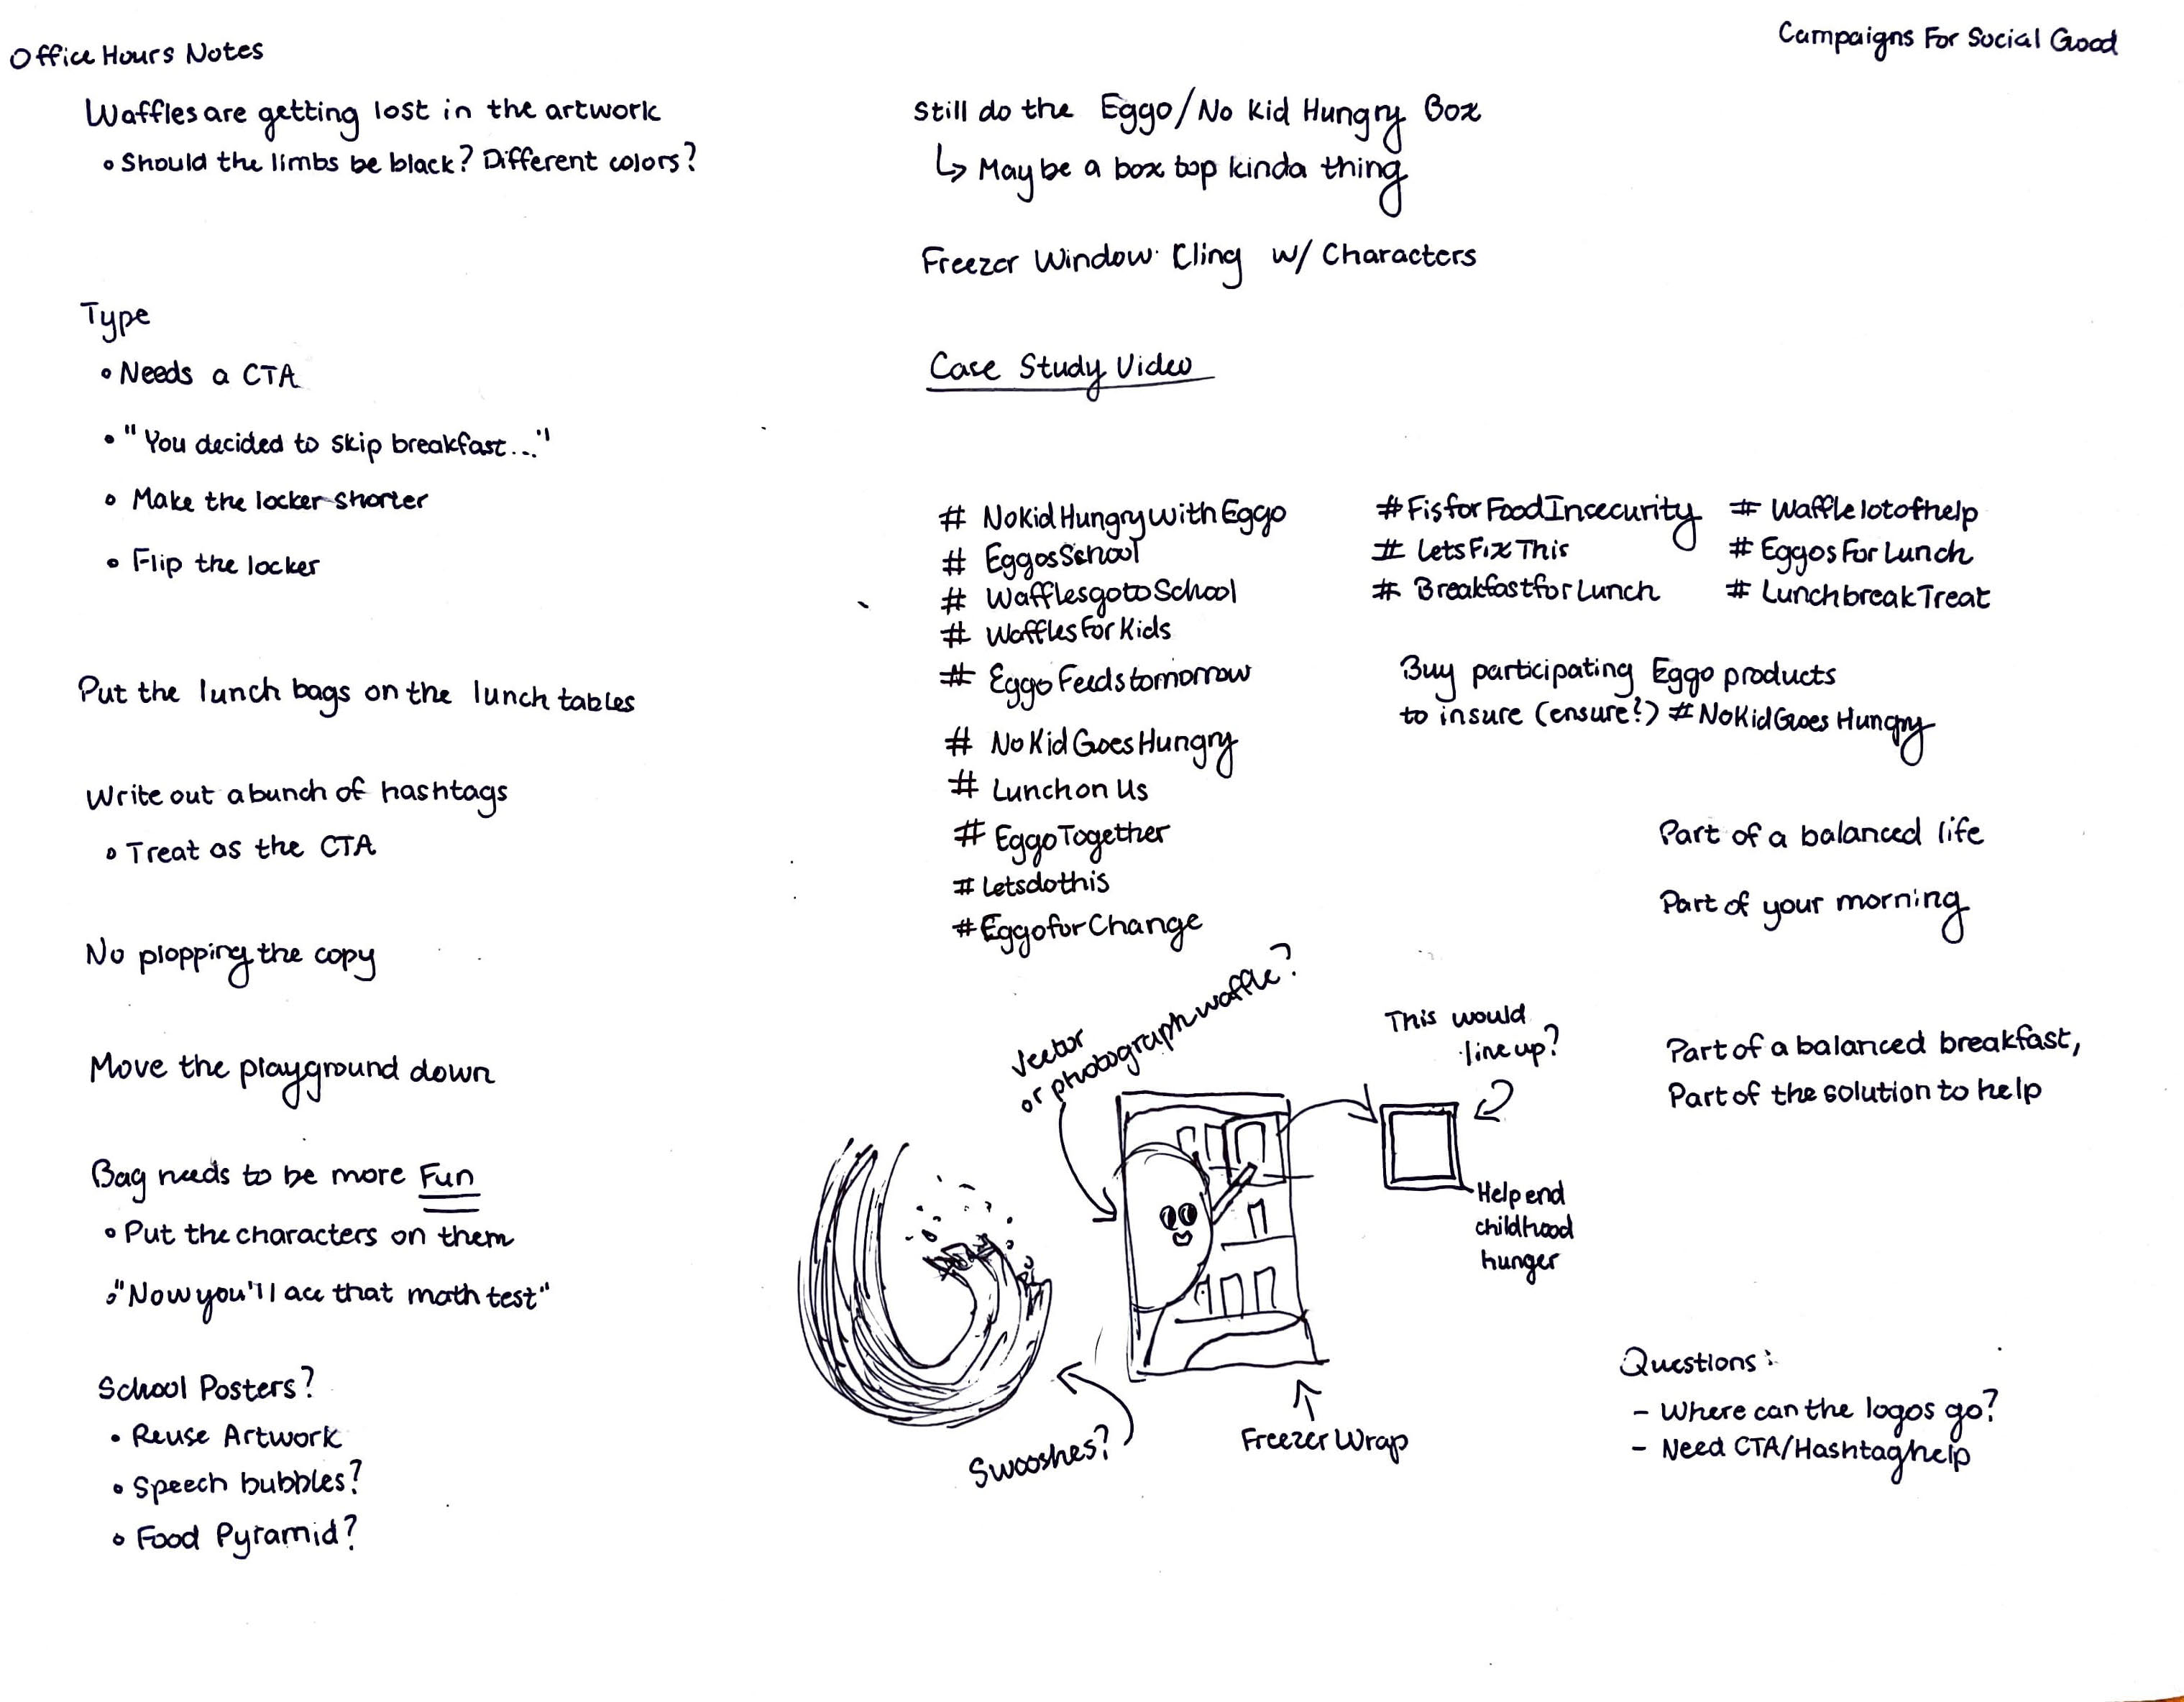 Office Hours Notes
Campaigns For Social Good
Waffles are getting lost in the artwork
• Should the limbs be black? Different colors?
Type
• Needs a CTA
• "You decided to skip breakfast..."
• Make the locker shorter
• Flip the locker
Put the lunch bags on the lunch tables
Write out a bunch of hashtags
• Treat as the CTA
No plopping the copy
Move the playground down
Bag needs to be more Fun
• Put the characters on them
• "Now you'll ace that math test"
School Posters?
• Reuse Artwork
• Speech bubbles?
• Food Pyramid?
Still do the Eggo/No Kid Hungry Box
↳ Maybe a box top kinda thing
Freezer Window Cling w/ Characters
Case Study Video
# NoKidHungrywithEggo
# EggosSchool
# WafflesgotoSchool
# WafflesForKids
# EggoFeedstomorrow
# NoKidGoesHungry
# LunchonUs
# EggoTogether
# Letsdothis
# EggoforChange
# FisforFoodInsecurity
# LetsFixThis
# BreakfastforLunch
# Wafflelotofhelp
# EggosForLunch
# LunchbreakTreat
Buy participating Eggo products
to insure (ensure?) #NoKidGoesHungry
Part of a balanced life
Part of your morning
Part of a balanced breakfast,
Part of the solution to help
vector
or photograph waffle?
This would
line up?
Help end
childhood
hunger
Swooshes?
Freezer Wrap
Questions:
- Where can the logos go?
- Need CTA/Hashtag help